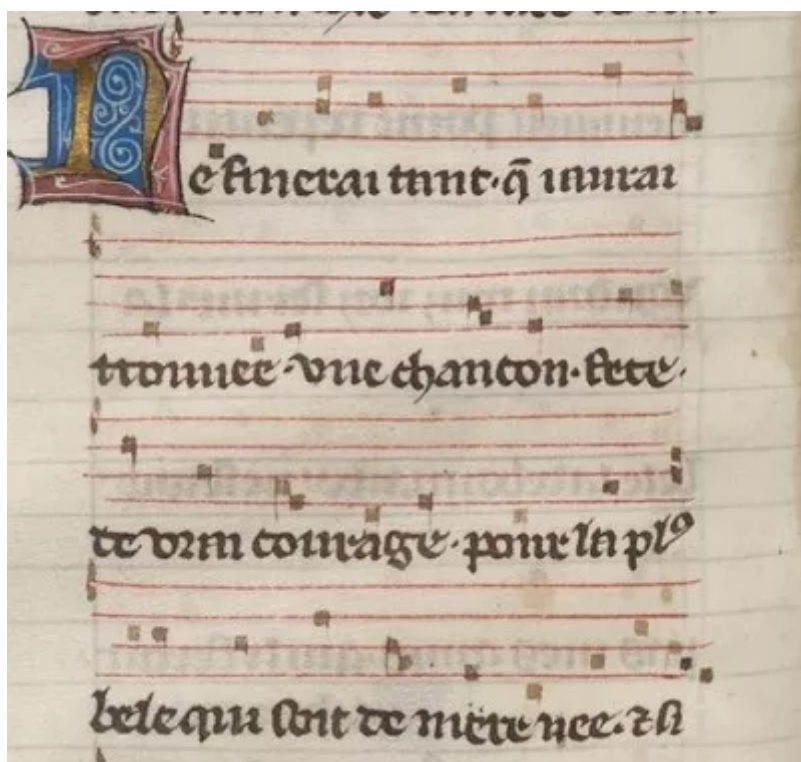 Ne finerai tant. q̃ iaurai
trouuee. vne chancon. fete.
de vrai courage. pour la plꝰ
bele qui soit de mere nee. ⁊ si